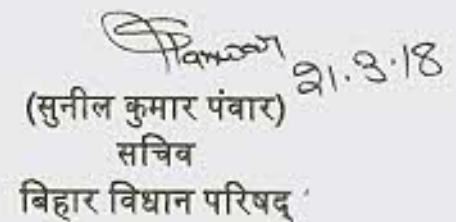 Panwar
21.3.18
(सुनील कुमार पंवार)
सचिव
बिहार विधान परिषद्